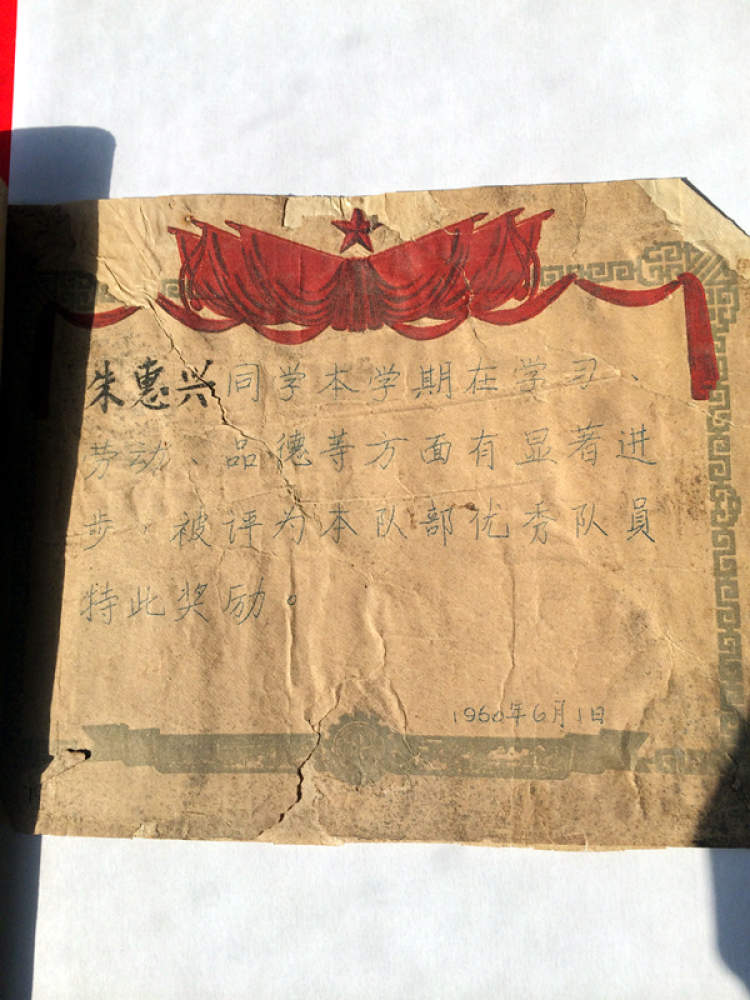 朱惠兴同学本学期在学习、
劳动、品德等方面有显著进
步，被评为本队部优秀队員
特此奖励。
1960年6月1日